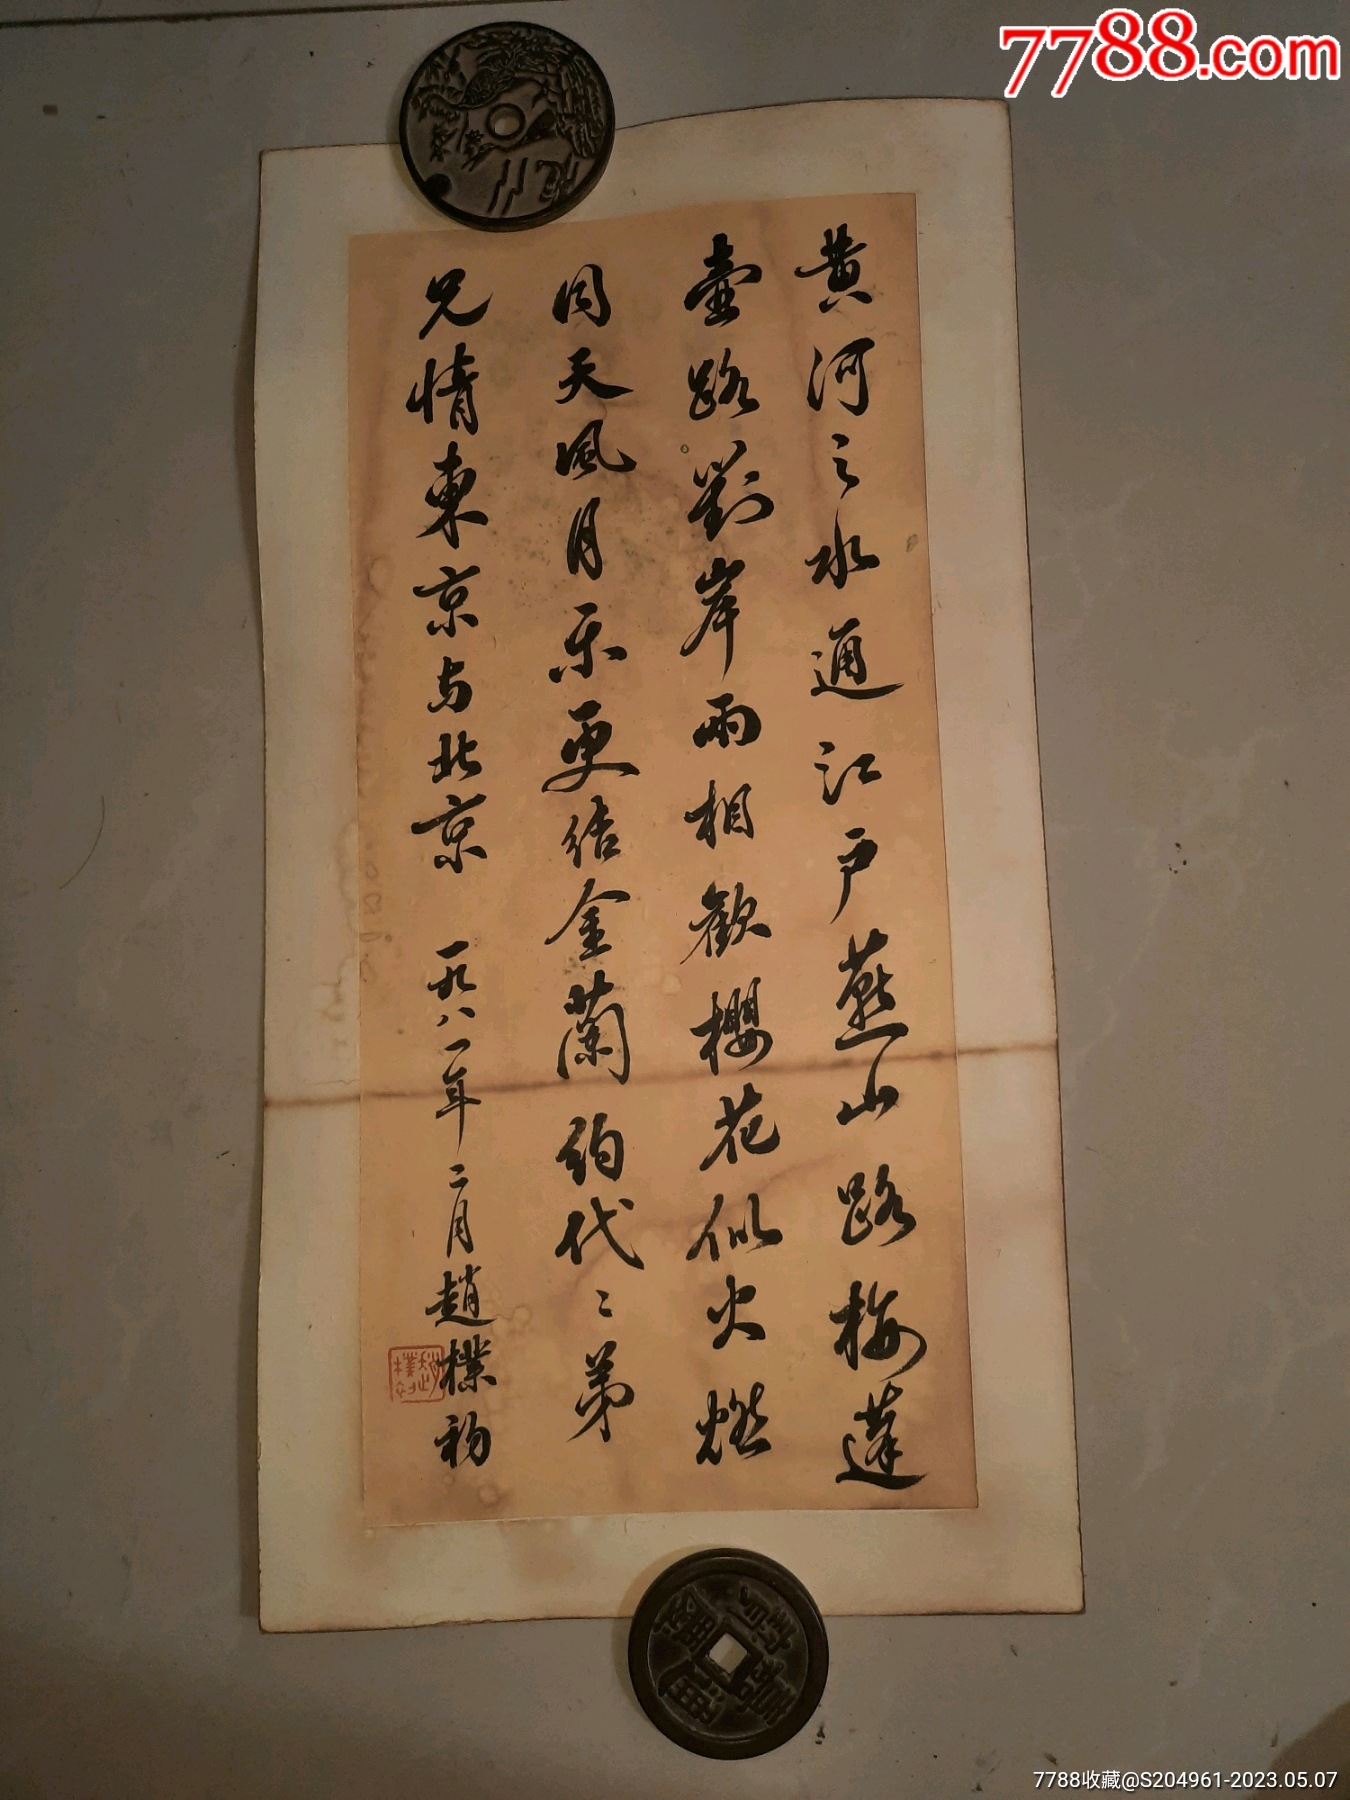 7788.com
黄河之水通江户燕山路梅蓬
壶路對岸兩相歡櫻花似火燃
同天風月乐更结金蘭约代〻弟
兄情東京与北京 一九八一年二月趙樸初
趙樸初
7788收藏@S204961-2023.05.07